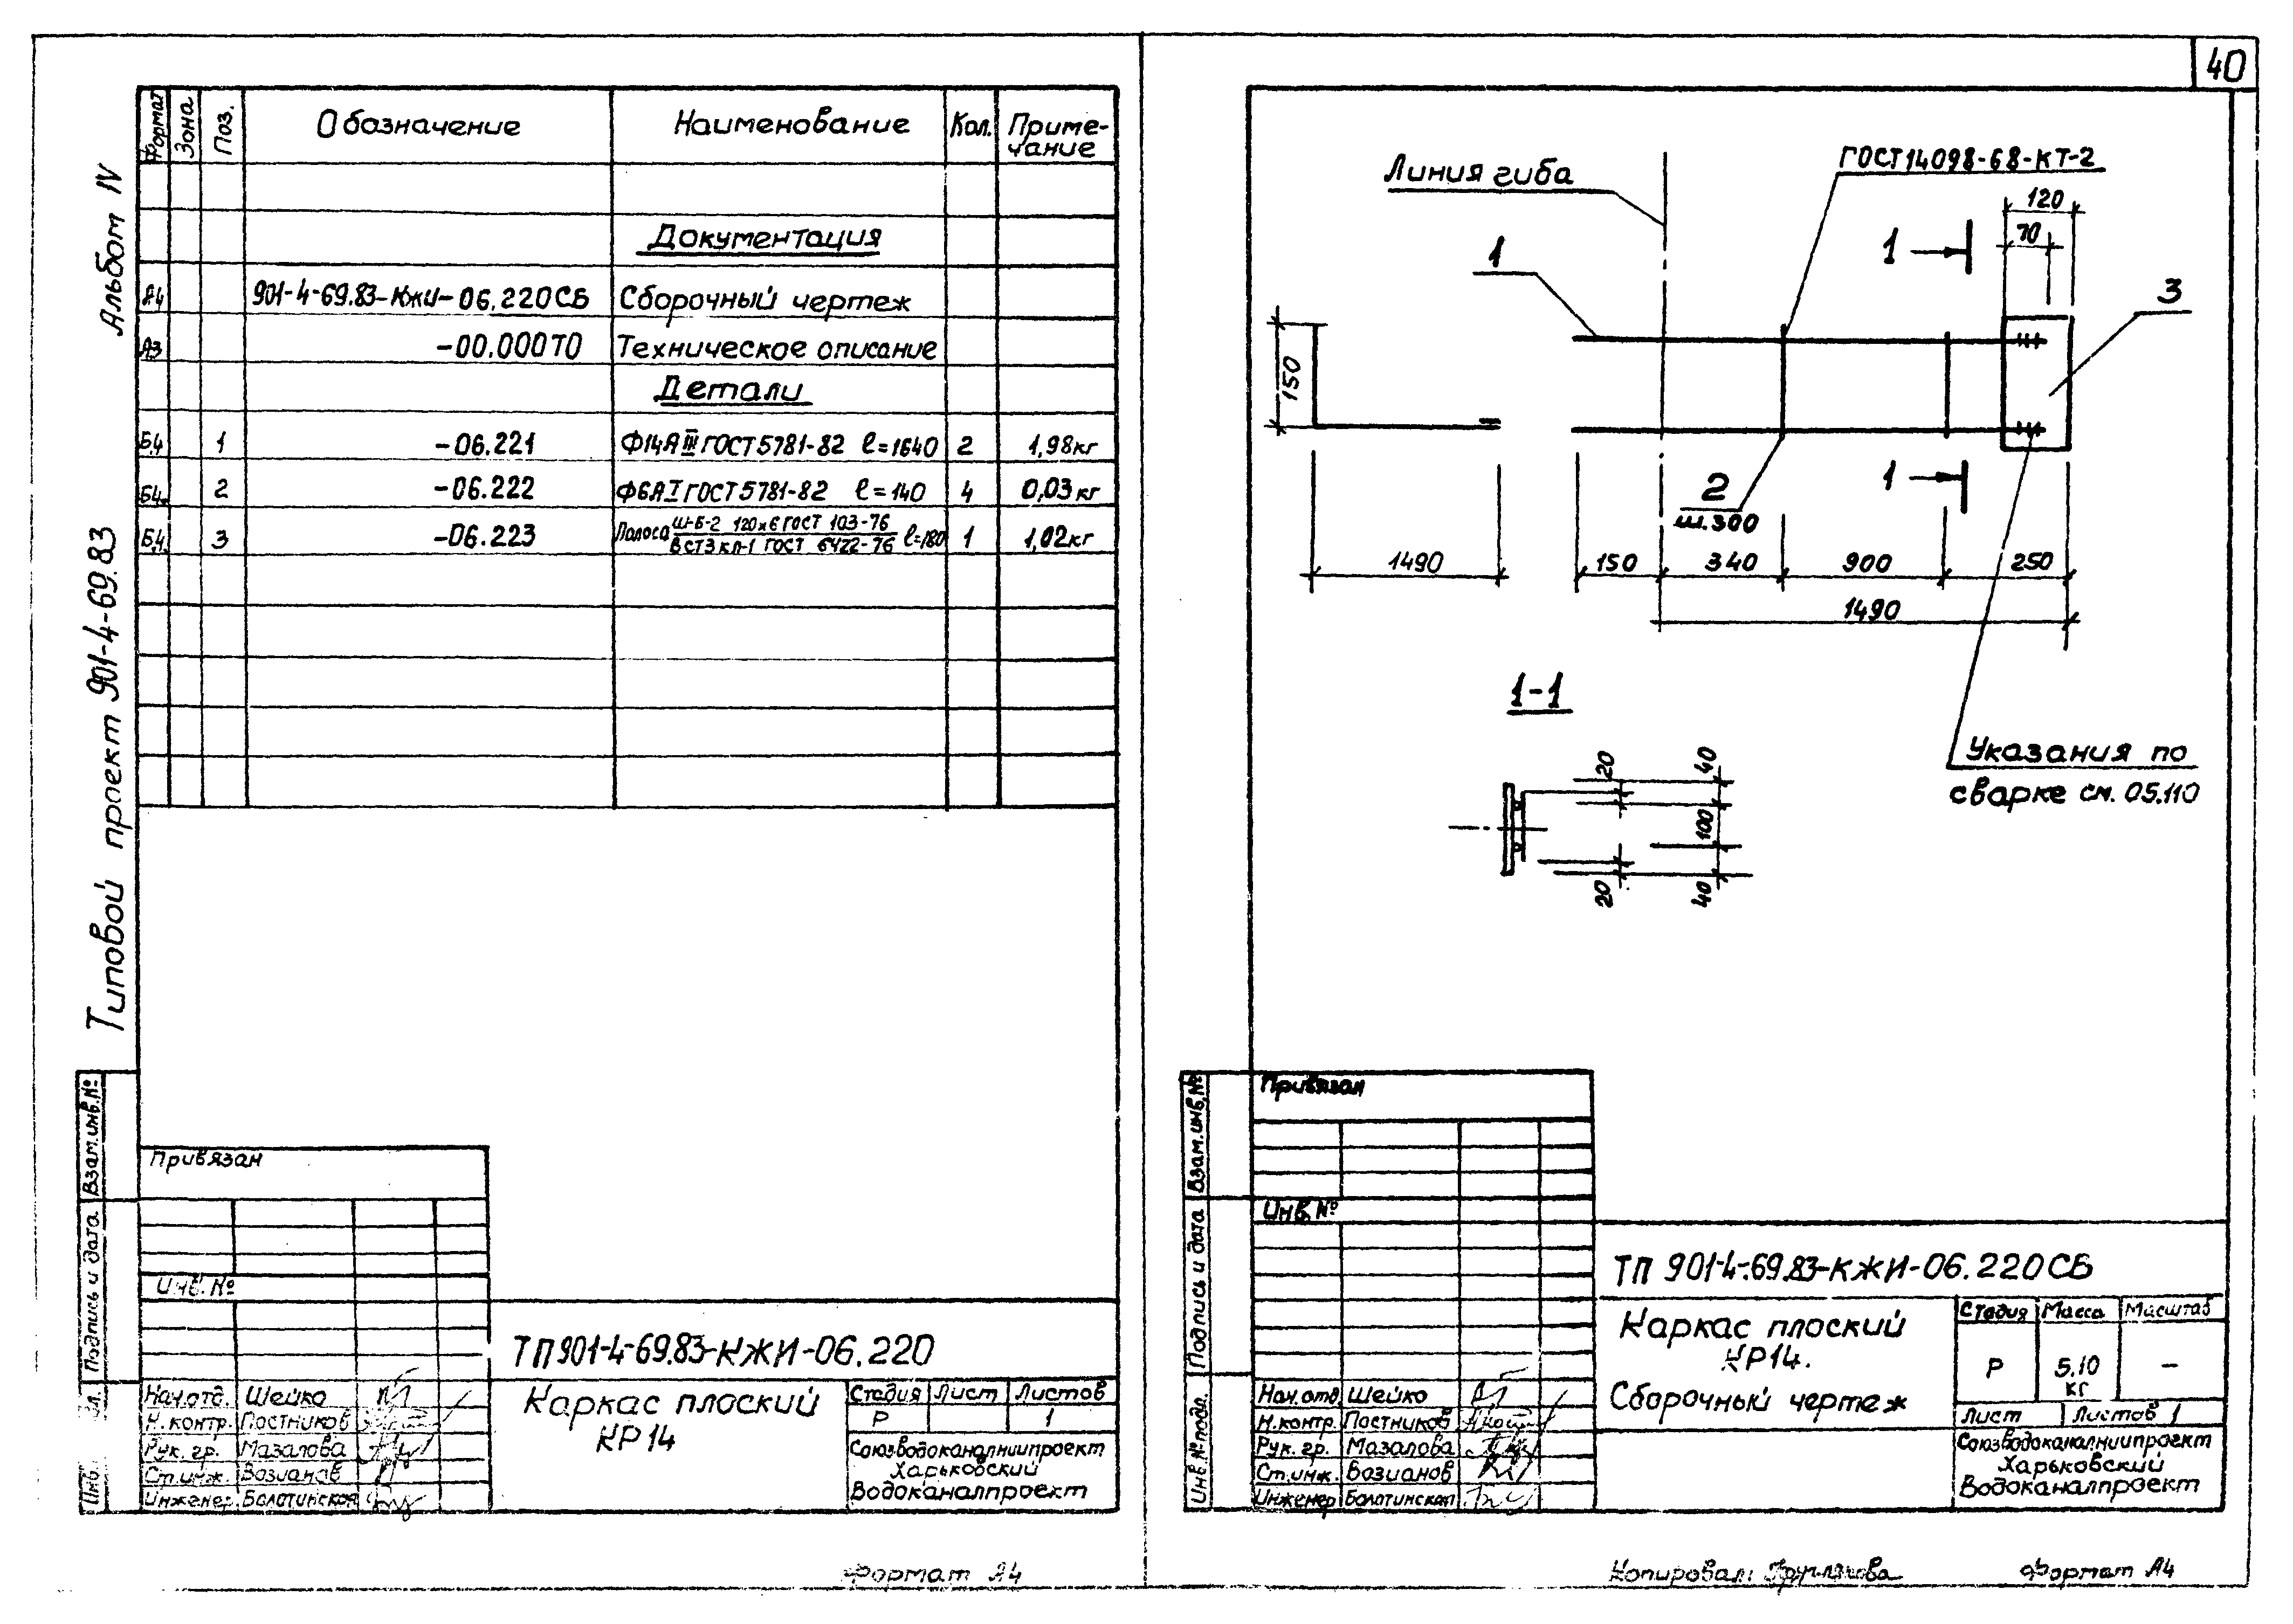 40
Альбом IV
Типовой проект 901-4-69.83
Формат Зона Поз. Обозначение Наименование Кол. Приме-
чание
Документация
А4 901-4-69.83-КЖИ-06.220СБ Сборочный чертеж
А3 -00.000ТО Техническое описание
Детали
Б.4 1 -06.221 Ф14АIII ГОСТ 5781-82 ℓ=1640 2 1,98кг
Б4. 2 -06.222 Ф6АI ГОСТ 5781-82 ℓ=140 4 0,03кг
Б.4. 3 -06.223 Полоса Ш-Б-2 120х6 ГОСТ 103-76 ℓ=180 1 1,02кг
ВСТ3кп-1 ГОСТ 6422-76
Взам.инв.№
Подпись и дата
Инв.
Привязан
Инв. №
ТП 901-4-69.83-КЖИ-06.220
Нач.отд. Шейко
Н.контр. Постников
Рук. гр. Мазалова
Ст.инж. Возианов
Инженер Болотинская
Каркас плоский
КР14
Стадия Лист Листов
Р 1
Союзводоканалниипроект
Харьковский
Водоканалпроект
Формат А4
Линия гиба
ГОСТ 14098-68-КТ-2
120
70
1
1
3
150
1
2
ш.300
1490
150
340
900
250
1490
1-1
Указания по
сварке см. 05.110
20
40
100
20
40
Взам.инв.№
Подпись и дата
Инв.№ подл.
Привязан
Инв.№
ТП 901-4-69.83-КЖИ-06.220СБ
Нач.отд Шейко
Н.контр. Постников
Рук. гр. Мазалова
Ст.инж. Возианов
Инженер Болотинская
Каркас плоский
КР14.
Сборочный чертеж
Стадия Масса Масштаб
Р 5,10 —
кг
Лист Листов 1
Союзводоканалниипроект
Харьковский
Водоканалпроект
Копировал:
Формат А4